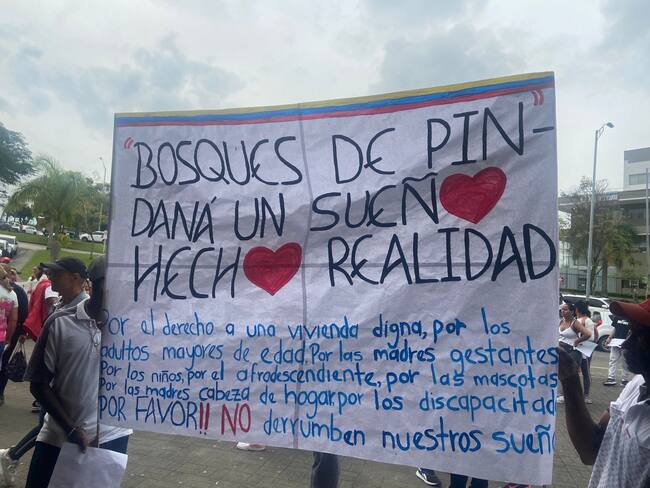 "BOSQUES DE PIN-"
DANÁ UN SUEÑO
HECHO REALIDAD
Por el derecho a una vivienda digna, por los
adultos mayores de edad. Por las madres gestantes
Por los niños, por al afrodescendiente, por las mascotas
Por las madres cabeza de hogar por los discapacitad
POR FAVOR!! NO derrumben nuestros sueño